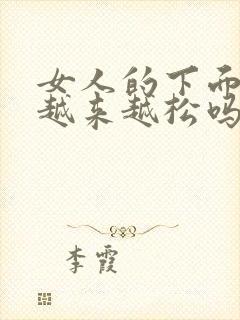 女人的下面
越来越松吗
李霞